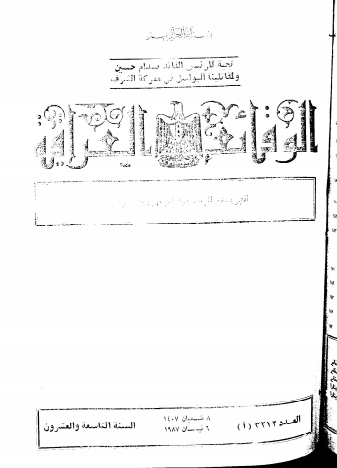 بسم الله الرحمن الرحيم
تحية للرئيس القائد صدام حسين
ولمقاتلينا البواسل في معركة الشرف
الوقائع العراقية
العدد ٣٢١٣ (١)
٨ شعبان ١٤٠٧
٦ نيسان ١٩٨٧
السنة التاسعة والعشرون